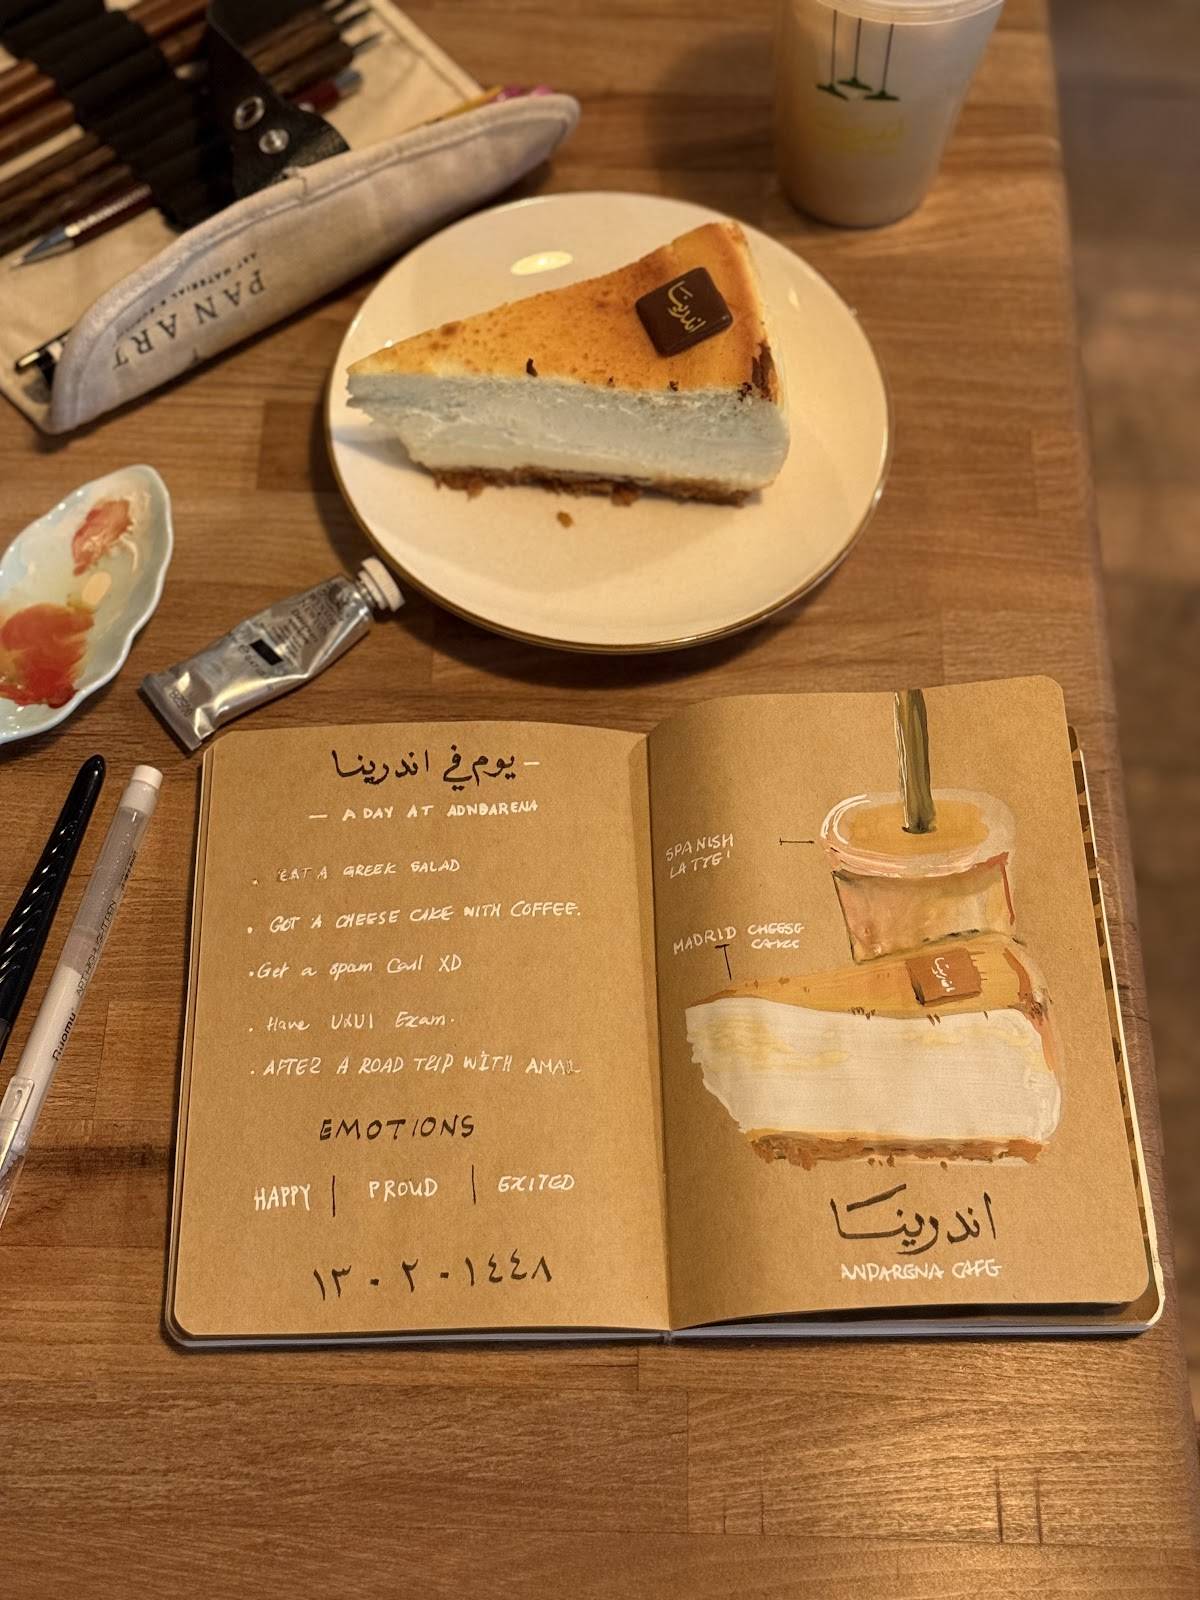 اندرينا
PAN ART
ART MATERIAL &
يوم في اندرينا –
— A DAY AT ADNDARENA
. EAT A GREEK SALAD
. GOT A CHEESE CAKE WITH COFFEE.
. Get a spam Call XD
. Have UXUI Exam.
. AFTER A ROAD TRIP WITH AMAL
EMOTIONS
HAPPY | PROUD | EXITED
١٣ . ٢ . ١٤٤٨
SPANISH
LATTE
MADRID CHEESE
CAKE
اندرينا
اندرينا
ANDARENA CAFE
ART HIGHLIGHT PEN